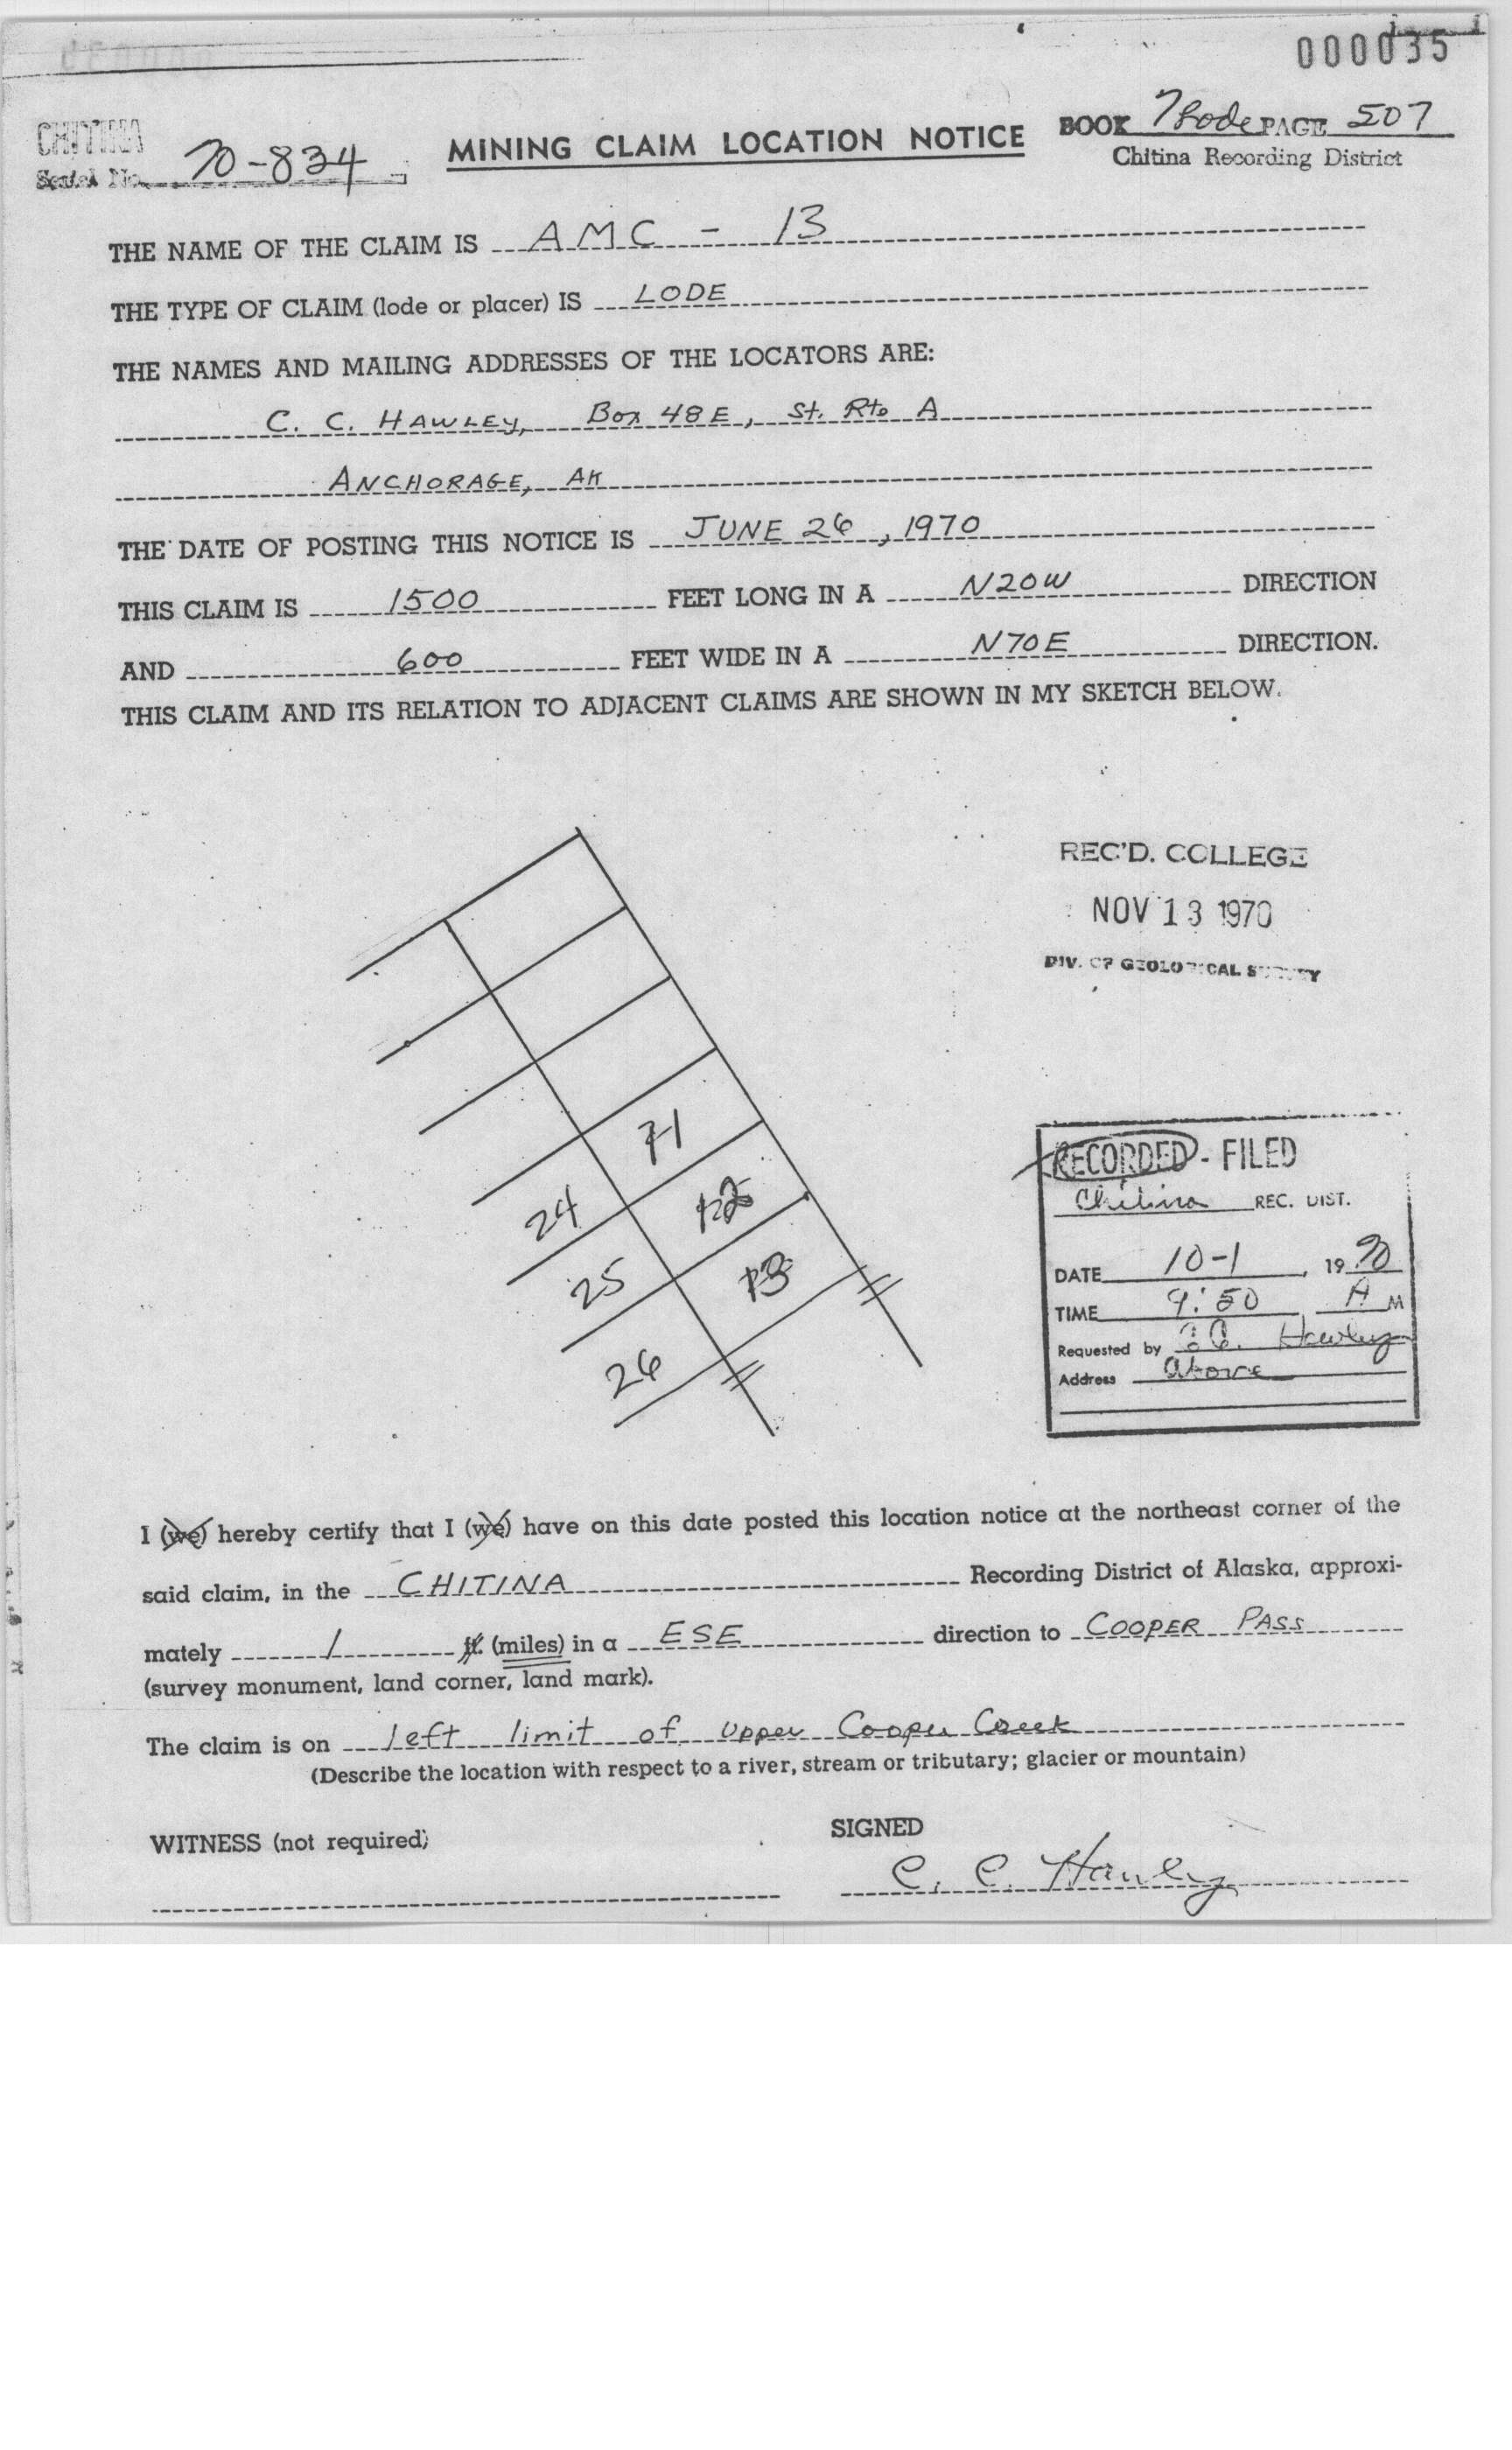 000035
CHITINA
Serial No. 70-834
MINING CLAIM LOCATION NOTICE
BOOK 7 Lode PAGE 507
Chitina Recording District
THE NAME OF THE CLAIM IS AMC - 13
THE TYPE OF CLAIM (lode or placer) IS LODE
THE NAMES AND MAILING ADDRESSES OF THE LOCATORS ARE:
C. C. HAWLEY, Box 48E, St. Rte A
ANCHORAGE, AK
THE DATE OF POSTING THIS NOTICE IS JUNE 26, 1970
THIS CLAIM IS 1500 FEET LONG IN A N20W DIRECTION
AND 600 FEET WIDE IN A N70E DIRECTION.
THIS CLAIM AND ITS RELATION TO ADJACENT CLAIMS ARE SHOWN IN MY SKETCH BELOW.
REC'D. COLLEGE
NOV 13 1970
DIV. OF GEOLOGICAL SURVEY
24
12
25
13
26
RECORDED - FILED
Chitina REC. DIST.
DATE 10-1, 1970
TIME 9:50 A M
Requested by C.C. Hawley
Address above
I (we) hereby certify that I (we) have on this date posted this location notice at the northeast corner of the
said claim, in the CHITINA Recording District of Alaska, approxi-
mately 1 ft. (miles) in a ESE direction to COOPER PASS
(survey monument, land corner, land mark).
The claim is on left limit of upper Cooper Creek
(Describe the location with respect to a river, stream or tributary; glacier or mountain)
WITNESS (not required)
SIGNED
C. C. Hawley